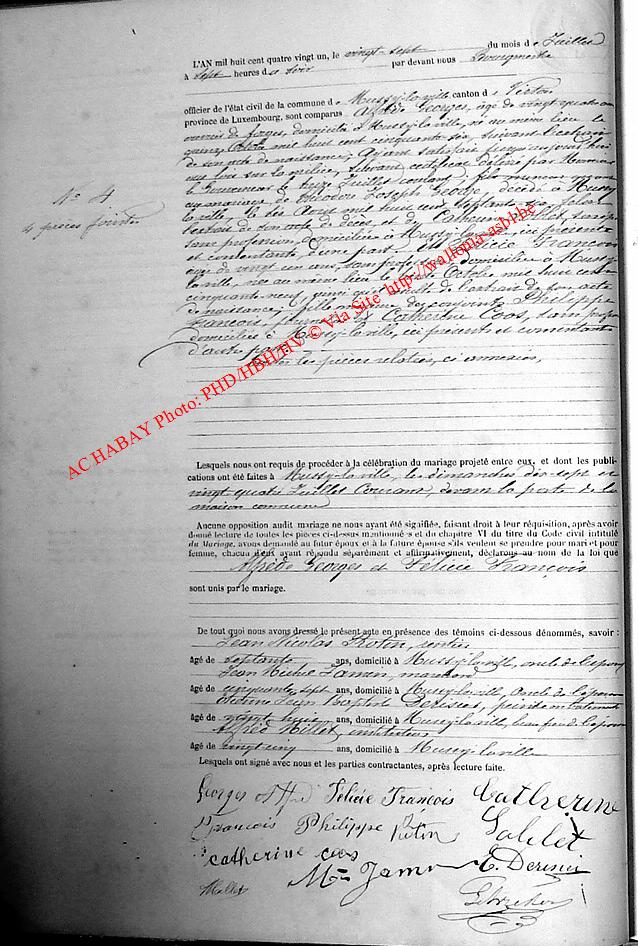 L'AN mil huit cent quatre vingt un, le vingt-sept du mois de Juillet
à sept heures du soir par devant nous Bourgmestre
officier de l'état civil de la commune de Mussy-la-ville canton de Virton
province de Luxembourg, sont comparus Alfred Georges, âgé de vingt quatre ans
de forges, domicilié à Mussy-la-ville, né au même lieu le
quinze Octobre mil huit cent cinquante six, suivant l'extrait
de son acte de naissance, ayant satisfait jusqu'aujourd'hui
aux lois sur la milice, suivant certificat délivré par Monsieur
le Gouverneur le onze Juillet courant, fils majeur
N° 4
4 pièces jointes
Joseph Georges, décédé à Mussy
la-ville, le dix Août mil huit cent septante
l'extrait de son acte de décès, et de Catherine
sans profession, domiciliée à Mussy-la-ville, ici présente
et consentante, d'une part. Et Félicie François
âgée de vingt un ans, sans profession, domiciliée à Mussy-
la-ville, née au même lieu le Octobre mil huit cent
cinquante neuf, ainsi qu'il résulte de l'extrait de son acte
de naissance, fille majeure des conjoints Philippe
François, et Catherine Coos, sans profession
domiciliés à Mussy-la-ville, ici présents et consentants
d'autre part.
les pièces relatées, ci annexées,
AC HABAY Photo: PHD/HBH/HV © Via Site http://wallonia-asbl.be
Lesquels nous ont requis de procéder à la célébration du mariage projeté entre eux, et dont les publi-
cations ont été faites à Mussy-la-ville, les dimanches dix-sept et
vingt quatre Juillet courant, devant la porte de la
maison commune
Aucune opposition audit mariage ne nous ayant été signifiée, faisant droit à leur réquisition, après avoir
donné lecture de toutes les pièces ci-dessus mentionnées et du chapitre VI du titre du Code civil intitulé
du Mariage, avons demandé au futur époux et à la future épouse s'ils veulent se prendre pour mari et pour
femme, chacun d'eux ayant répondu séparément et affirmativement, déclarons au nom de la loi que
Alfred Georges et Félicie François
sont unis par le mariage.
De tout quoi nous avons dressé le présent acte en présence des témoins ci-dessous dénommés, savoir :
Jean Nicolas rentier
âgé de septante ans, domicilié à Mussy-la-ville, oncle de l'époux
Jean Michel Jamin, marchand
âgé de cinquante sept ans, domicilié à Mussy-la-ville, oncle de
Jean Baptiste peintre en bâtiments
âgé de vingt huit ans, domicilié à Mussy-la-ville, beau frère de
Alfred Mallet, instituteur
âgé de vingt cinq ans, domicilié à Mussy-la-ville
Lesquels ont signé avec nous et les parties contractantes, après lecture faite.
Georges Alfred Félicie François Catherine
François Philippe
catherine coos
Mallet